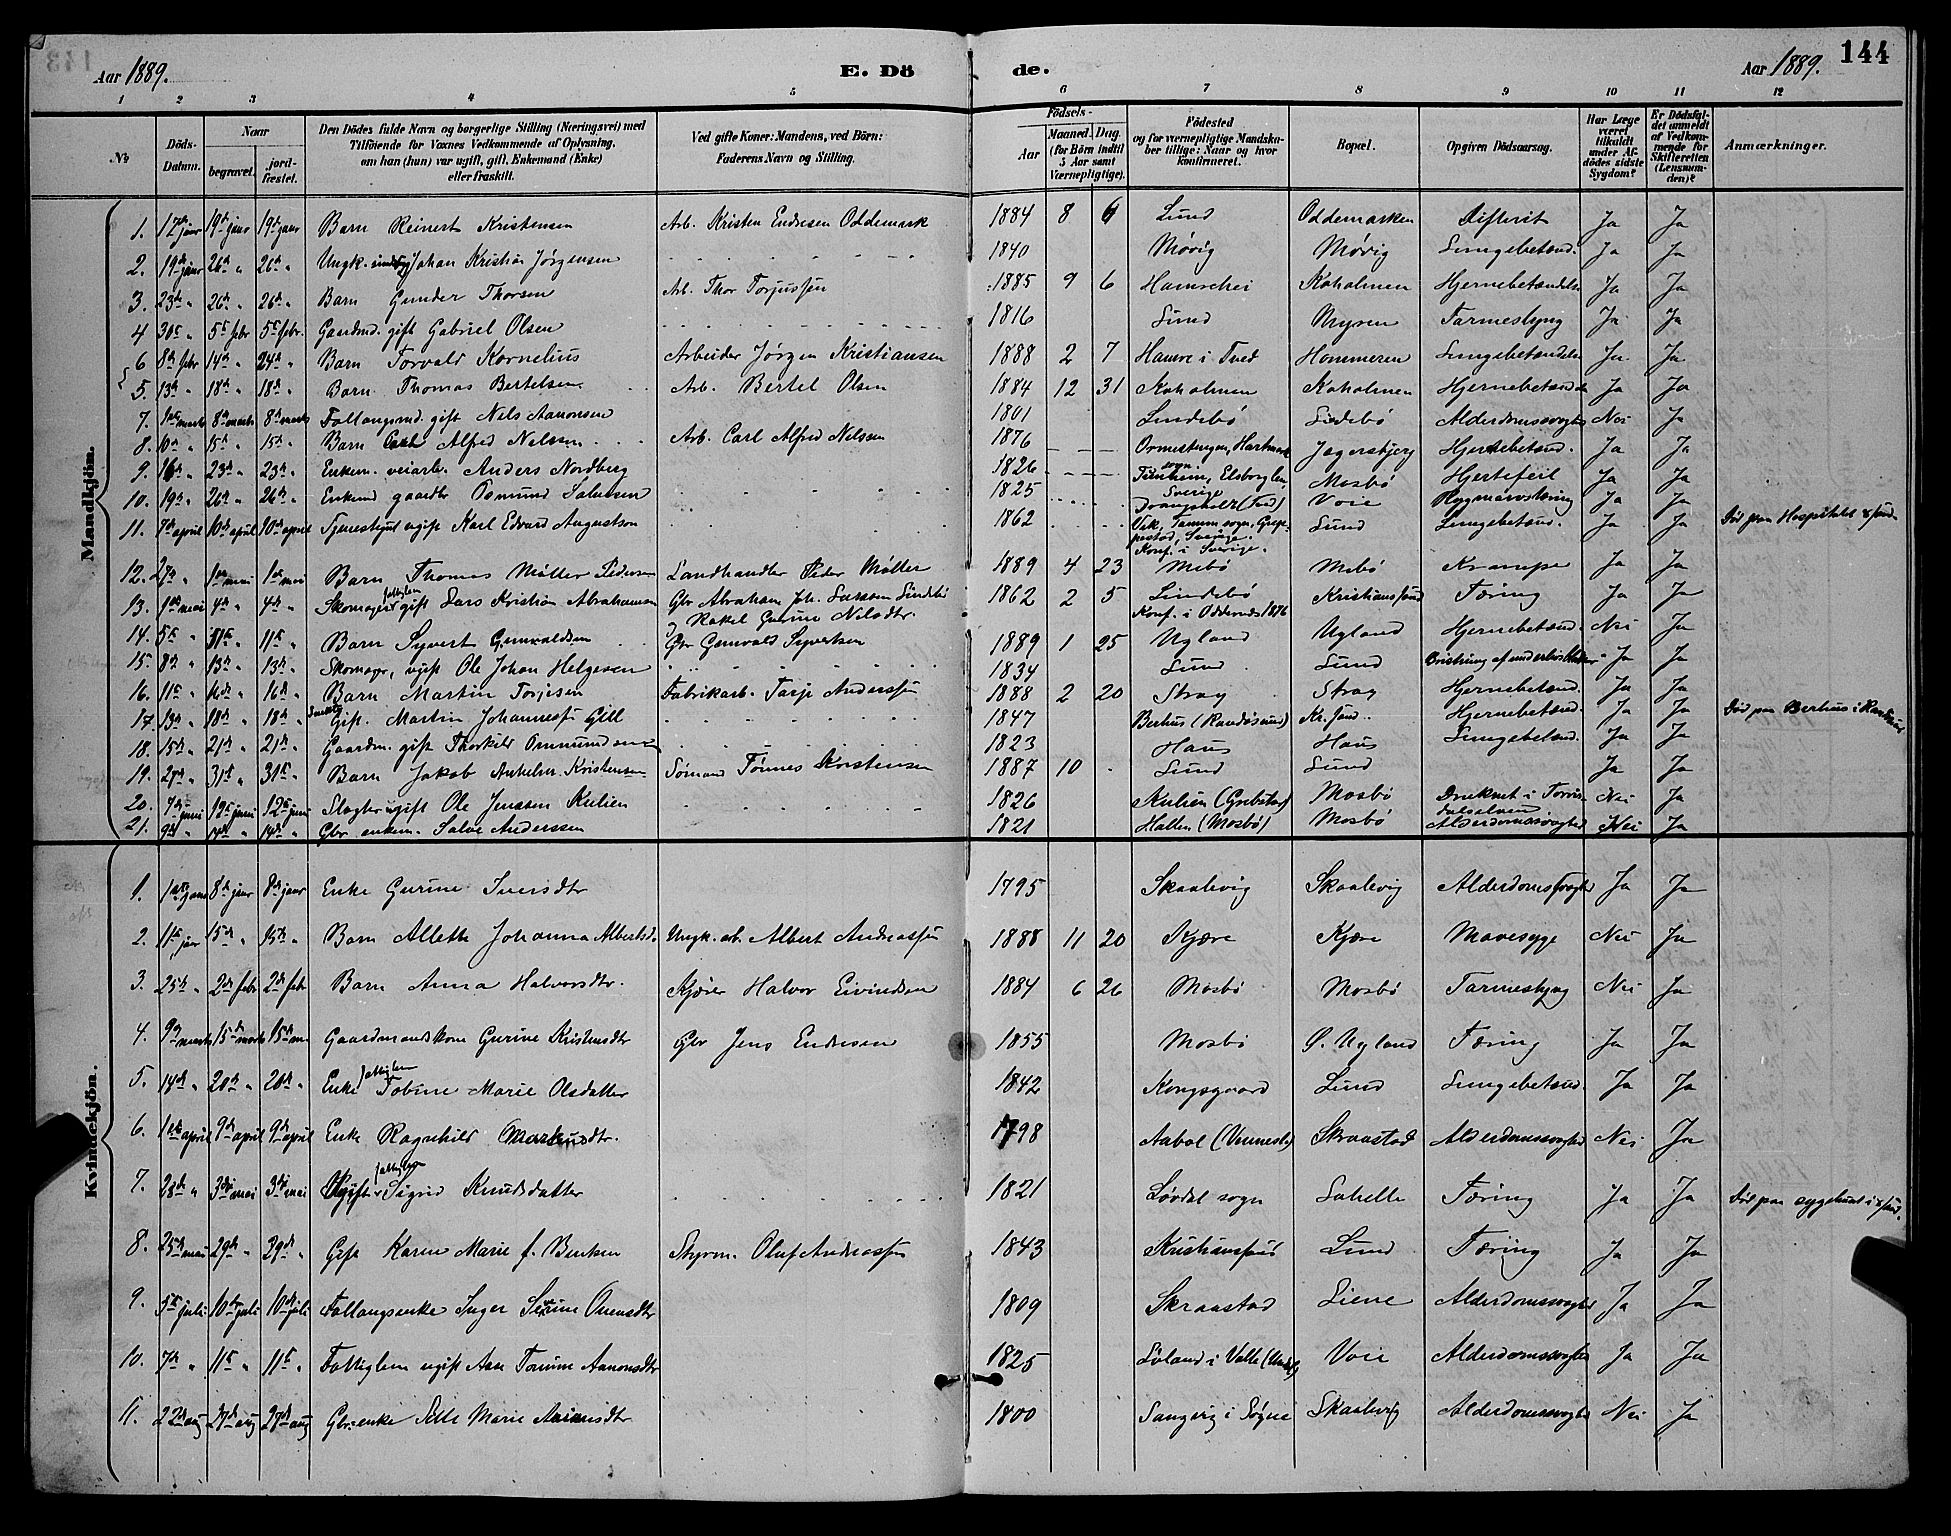 143
144
Aar 1889. E. Dö de. Aar 1889.
1 2 3 4 5 6 7 8 9 10 11 12
№ Döds-Datum. Naar begravet. jordfæstet. Den Dödes fulde Navn og borgerlige Stilling (Næringsvei) med Tilföiende for Voxnes Vedkommende af Oplysning, om han (hun) var ugift, gift, Enkemand (Enke) eller fraskilt. Ved gifte Koner: Mandens, ved Börn: Faderens Navn og Stilling. Födsels- Aar Maaned. Dag. (for Börn indtil 5 Aar samt Værnepligtige). Födested og for værnepligtige Mandskaber tillige: Naar og hvor konfirmeret. Bopæl. Opgiven Dödsaarsag. Har Læge været tilkaldt under Afdödes sidste Sygdom? Er Dödsfaldet anmeldt af Vedkommende for Skifteretten (Lensmanden)? Anmærkninger.
Mandkjön.
1. 17de janr 19de janr 19de janr Barn Reinert Kristensen Arb. Kristen Endresen Oddemark 1884 8 6 Lund Oddemarken Difterit Ja Ja
2. 19de janr 26de " 26de " Ungk. Johan Kristian Jørgensen 1840 Møvig Møvig Lungebetænd. Ja Ja
3. 23de " 26de " 26de " Barn Gunder Thorsen Arb. Thor Torjussen 1885 9 6 Kaholmen Hjernebetændelse Ja Ja
4 30te " 5te febr 5te febr. Gaardmd. gift Gabriel Olsen 1816 Lund Myren Ja Ja
6 8de febr 14de " 24de " Barn Torvald Kornelius Arbeider Jørgen Kristiansen 1888 2 7 Hamre i Tved Hommeren Lungebetændelse Ja Ja
5. 13de " 18de " 18de " Barn Thomas Bertelsen Arb. Bertel Olsen 1884 12 31 Kaholmen Kaholmen Hjernebetændelse Ja Ja
7. 1ste marts 8de marts 8de marts Fattiglegsmd gift Nels Aanonsen 1801 Lindebø Lindebø Alderdomssvaghed Nei Ja
8. 10de " 15de " 15de " Barn Alfred Nelsen Arb. Carl Alfred Nelssen 1876 Jegersbjerg Hjernebetænd. Ja Ja
9. 16de " 23de " 23de " Enkem. veiarb. Anders Nordberg 1826 Elsborglen Sverige Mosbø Hjertefeil Ja Ja
10. 19de " 26de " 26de " Enkemd gaardbr Osmund Salvesen 1825 Drangsholt (Tved) Voie Rygmarvstæring Ja Ja
11. 7de april 10de april 10de april Tjenestegut ugift Karl Edvard Augustson 1862 Vik, Tanum sogn, Grebbestad, Sverige. Konf. i Sverige. Lund Lungebetænd. Ja Ja Død paa Hospitalet Xsand
12. 27de " 1ste mai 1ste mai Barn Thomas Møller Pedersen Landhandler Peder Møller 1889 4 23 Mebø Mebø Krampe Ja Ja
13. 1ste mai 4de " 4de " Skomager gift Lars Kristian Abrahamsen Gbr Abraham Joh. Larssen Lindebø og Rakel Gurine Nelsdtr. 1862 2 5 Lindebø Konf. i Oddernes 1876 Kristianssand Tæring Ja Ja
14. 5te " 11te " 11te " Barn Syvert Gunvaldsen Gbr Gunvald Syvertsen 1889 1 25 Ugland Ugland Hjernebetænd. Nei Ja
15. 8de " 13de " 13de " Skomagr, ugift Ole Johan Helgesen 1834 Lund Lund Ja Ja
16. 11te " 16de " 16de " Barn Martin Torjesen Fabrikarb. Tarje Anderssen 1888 2 20 Strag Strag Hjernebetænd. Ja Ja
17. 13de " 18de " 18de " Gift. Martin Johannessen Gill 1847 Berhus (Randøsund) Kr.sand. Hjernebetænd. Ja Ja Død paa Berhus i Randøsund
18. 15de " 21de " 21de " Gaardm. gift Thorkild Ommundsen 1823 Haus Haus Lungebetænd. Ja Ja
19. 27de " 31te " 31te " Barn Jakob Anhelm. Kristensen Sømand Tønnes Kristensen 1887 10 Lund Lund Ja Ja
20. 7de juni 12te juni 12te juni Slagter ugift Ole Jenssen Kulien 1826 Kulien (Grebstad) Mosbø Druknet i Torridalselven Nei Ja
21. 9de " 14de " 14de " Gbr. enkem. Salve Anderssen 1821 Hallen (Mosbø) Mosbø Alderdomssvaghed Nei Ja
Kvindekjön.
1. 1ste janr 8de janr 8de janr Enke Gurine Iversdtr 1795 Skaalevig Skaalevig Alderdomssvaghed Ja Ja
2. 11te janr 15de " 15de " Barn Allette Johanna Albertsd. Ungk. arb. Albert Andreassen 1888 11 20 Kjære Kjære Mavesyge Nei Ja
3. 25de " 2de febr 2de febr Barn Anna Halvorsdtr. Kjører Halvor Eivindsen 1884 6 26 Mosbø Mosbø Nei Ja
4. 9de marts 15de marts 15de ma Gaardmandskone Gurine Kristensdtr Gbr Jens Endresen 1855 Mosbø Ø. Ugland Tæring Ja Ja
5. 14de " 20de " 20de " Enke fattiglem Tobine Marie Olsdatter 1842 Kongsgaard Lund Lungebetænd. Ja Ja
6. 1ste april 9de april 9de april Enke Ragnhild Markusdtr. 1798 Aabol (Vennesla) Skraastad Alderdomssvaghed Nei Ja
7. 28de " 3die mai 3die mai Ugift fattiglem Sigrid Knudsdatter 1821 Løvdal sogn Sahelle Tæring Ja Ja Død paa sygehuset i Xsand.
8. 25de mai 29de " 29de " Gift Karen Marie f. Bentsen Styrm. Oluf Andreassen 1843 Kristianssand Lund Tæring Ja Ja
9. 5te juli 10de juli 10de juli Fattiglegsenke Inger Serine Onensdtr 1809 Skraastad Liene Alderdomssvaghed Ja Ja
10. 7de " 11te " 11te " Fattiglem ugift Ase Tomine Aanonsdtr 1825 Voie Alderdomssvaghed Ja Ja
11. 22de aug 27de aug 27de aug Gbr. enke Sille Marie Aanensdtr 1800 Sangvig i Søgne Skaalevig Alderdomssvaghed Nei Ja